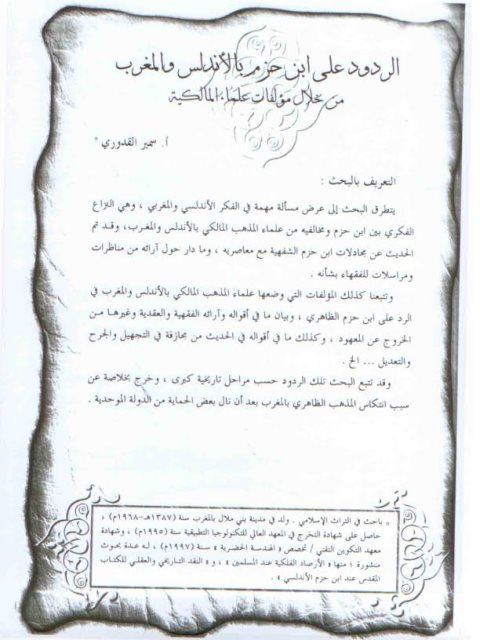 الردود على ابن حزم بالأندلس والمغرب
من خلال مؤلفات علماء المالكية
أ. سمير القدوري *
التعريف بالبحث :
يتطرق البحث إلى عرض مسألة مهمة في الفكر الأندلسي والمغربي ، وهي النزاع
الفكري بين ابن حزم ومخالفيه من علماء المذهب المالكي بالأندلس والمغرب، وقد تم
الحديث عن مجادلات ابن حزم الشفهية مع معاصريه ، وما دار حول آرائه من مناظرات
ومراسلات للفقهاء بشأنه .
وتتبعنا كذلك المؤلفات التي وضعها علماء المذهب المالكي بالأندلس والمغرب في
الرد على ابن حزم الظاهري ، وبيان ما في أقواله وآرائه الفقهية والعقدية وغيرها من
الخروج عن المعهود ، وكذلك ما في أقواله في الحديث من مجازفة في التجهيل والجرح
والتعديل ... الخ .
وقد تتبع البحث تلك الردود حسب مراحل تاريخية كبرى ، وخرج بخلاصة عن
سبب انتكاس المذهب الظاهري بالمغرب بعد أن نال بعض الحماية من الدولة الموحدية .
* باحث في التراث الإسلامي . ولد في مدينة بني ملال بالمغرب سنة (١٣٨٧هـ-١٩٦٨م) ،
حاصل على شهادة التخرج في المعهد العالي للتكنولوجيا التطبيقية سنة (١٩٩٥م) ، وشهادة
معهد التكوين التقني / تخصص « الهندسة الحضرية » سنة (١٩٩٧م) ، له عدة بحوث
منشورة ؛ منها « الأرصاد الفلكية عند المسلمين » ، و « النقد التاريخي والعقلي للكتاب
المقدس عند ابن حزم الأندلسي » .